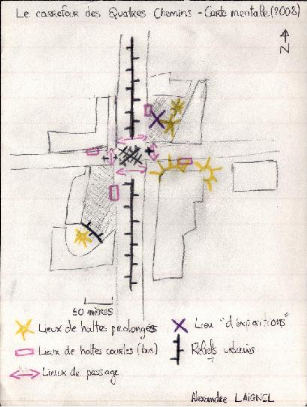 Le carrefour des Quatres Chemins - Carte mentale (2008)
N
50 mètres
Lieux de haltes prolongés
Lieu "d'expositions"
Lieux de haltes courtes (bus)
Rebuts urbains
Lieux de passage
Alexandre LAIGNEL